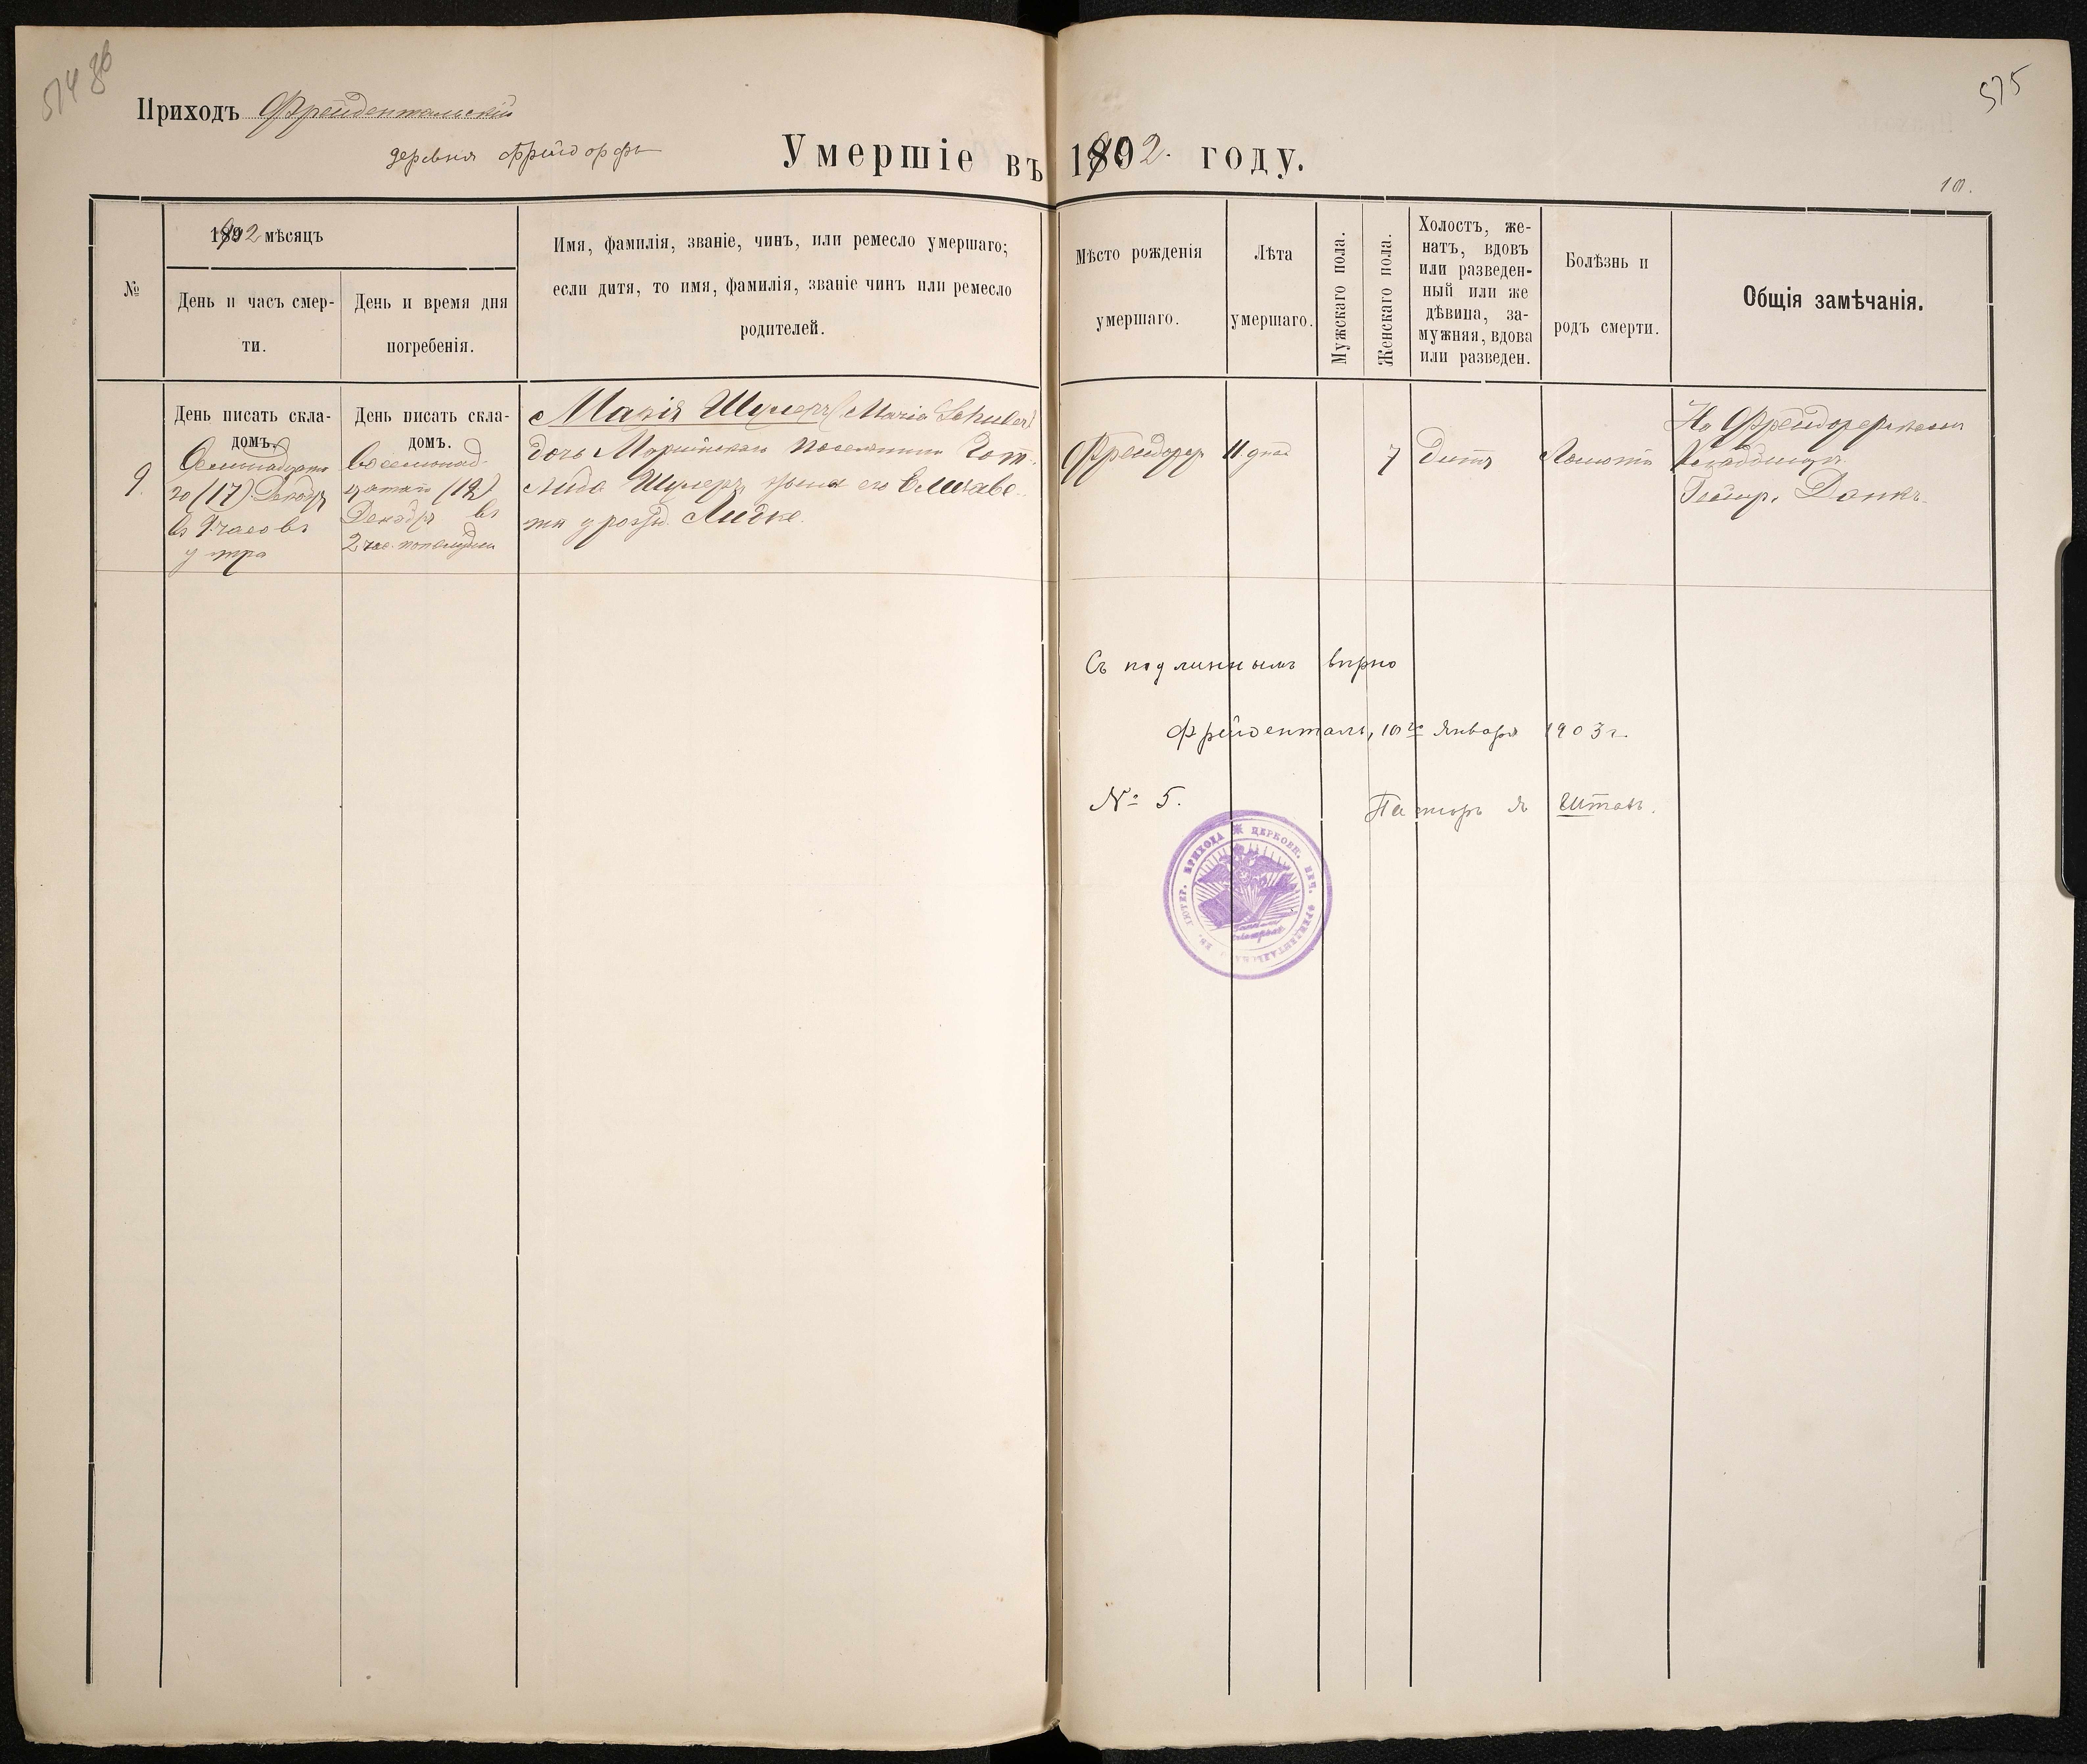 514 86
575
Приходъ Фрейдентальскій
деревня Фрейдорфъ
Умершіе въ 1902. году.
10.
1902 мѣсяцъ
№
День и часъ смер-
ти.
День и время дня
погребенія.
Имя, фамилія, званіе, чинъ, или ремесло умершаго;
если дитя, то имя, фамилія, званіе чинъ или ремесло
родителей.
Мѣсто рожденія
умершаго.
Лѣта
умершаго.
Мужскаго пола.
Женскаго пола.
Холостъ, же-
натъ, вдовъ
или разведен-
ный или же
дѣвица, за-
мужняя, вдова
или разведен.
Болѣзнь и
родъ смерти.
Общія замѣчанія.
9.
День писать скла-
домъ.
го (17) Декабр
въ 9 часовъ
утра
День писать скла-
домъ.
Восемнад-
цатаго (18)
Декабря въ
2 час. пополудни
Марія Шулеръ (Maria Schuler)
дочь Маріинскаго поселянина Гот-
либа Шулеръ жены его Елизаве-
та урожд. Лидке.
Фрейдорф
11 дней
7
Дитя
На Фрейдорфском
Кладбищѣ
С подлиннымъ вѣрно
Фрейденталь, 10го Января 1903 г.
№ 5.
Пасторъ Я Штахъ.
ЦЕРКОВН. ПЕЧ. ФРЕЙДЕНТАЛЬСКАГО ЕВ. ЛЮТЕР. ПРИХОДА